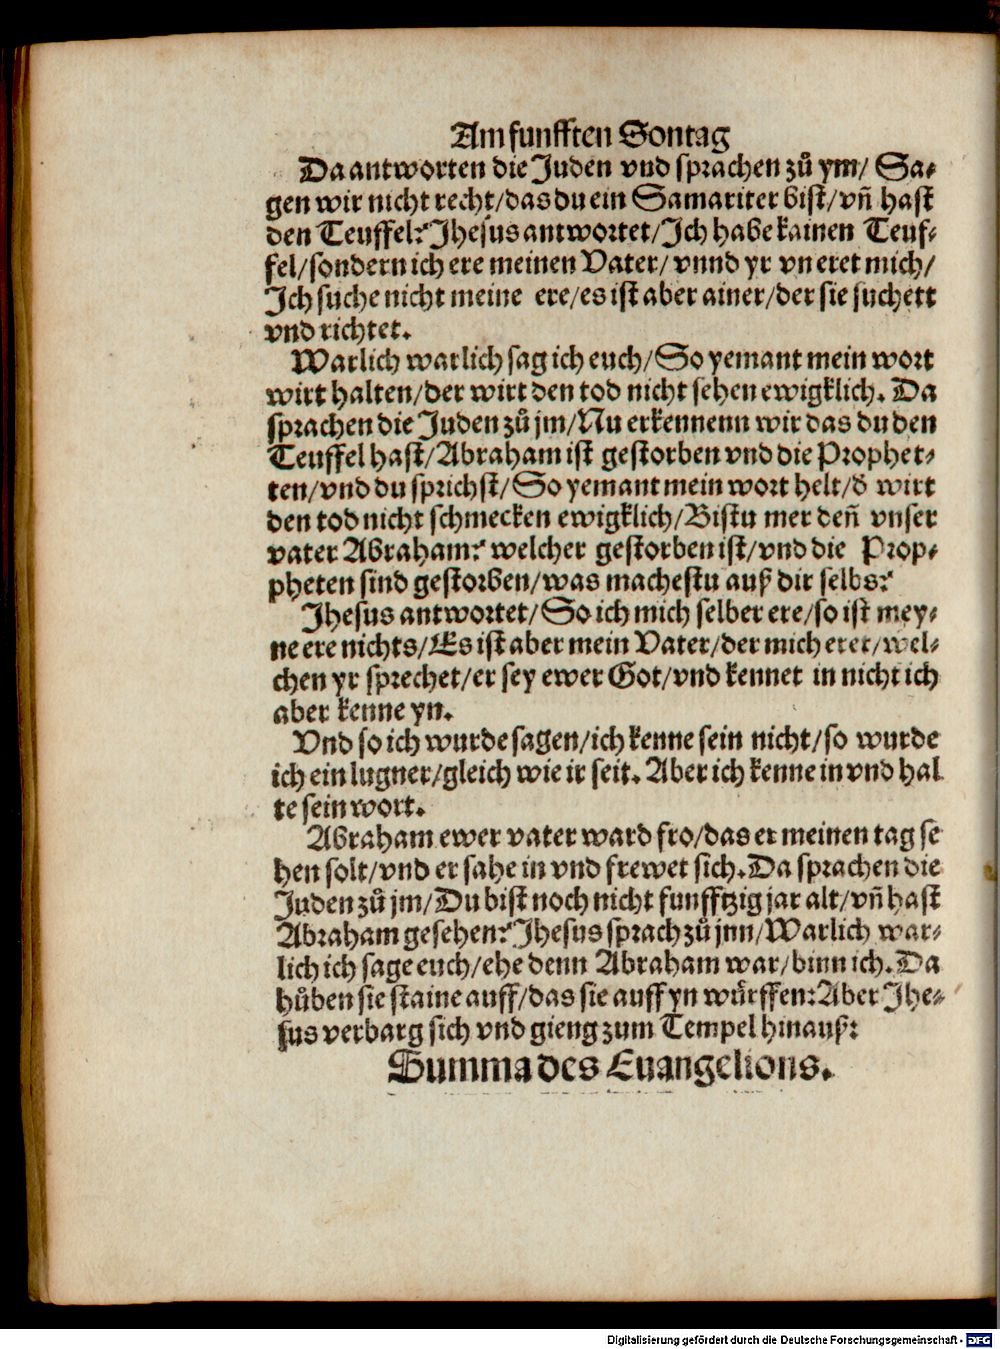 Am funfften Sontag
Da antworten die Juden vnd sprachen zů ym/ Sa-
gen wir nicht recht/das du ein Samariter bist/vñ hast
den Teuffel? Jhesus antwortet/Ich habe kainen Teuf-
fel/sondern ich ere meinen Vater/ vnnd yr vn eret mich/
Ich suche nicht meine ere/es ist aber ainer/der sie suchett
vnd richtet.
Warlich warlich sag ich euch/So yemant mein wort
wirt halten/der wirt den tod nicht sehen ewigklich. Da
sprachen die Juden zů jm/Nu erkennenn wir das du den
Teuffel hast/Abraham ist gestorben vnd die Prophet-
ten/vnd du sprichst/So yemant mein wort helt/d̕ wirt
den tod nicht schmecken ewigklich/Bistu mer deñ vnser
vater Abraham? welcher gestorben ist/vnd die Prop-
pheten sind gestorben/was machestu auß dir selbs?
Jhesus antwortet/So ich mich selber ere/so ist mey-
ne ere nichts/Es ist aber mein Vater/der mich eret/wel-
chen yr sprechet/er sey ewer Got/vnd kennet in nicht ich
aber kenne yn.
Vnd so ich wurde sagen/ich kenne sein nicht/so wurde
ich ein lugner/gleich wie ir seit. Aber ich kenne in vnd hal
te sein wort.
Abraham ewer vater ward fro/das er meinen tag se
hen solt/vnd er sahe in vnd frewet sich. Da sprachen die
Juden zů jm/Du bist noch nicht funfftzig jar alt/vñ hast
Abraham gesehen? Jhesus sprach zů jnn/Warlich war-
lich ich sage euch/ehe denn Abraham war/binn ich. Da
hůben sie staine auff/das sie auff yn würffen: Aber Jhe-
sus verbarg sich vnd gieng zum Tempel hinauß:
Summa des Euangelions.
Digitalisierung gefördert durch die Deutsche Forschungsgemeinschaft - DFG